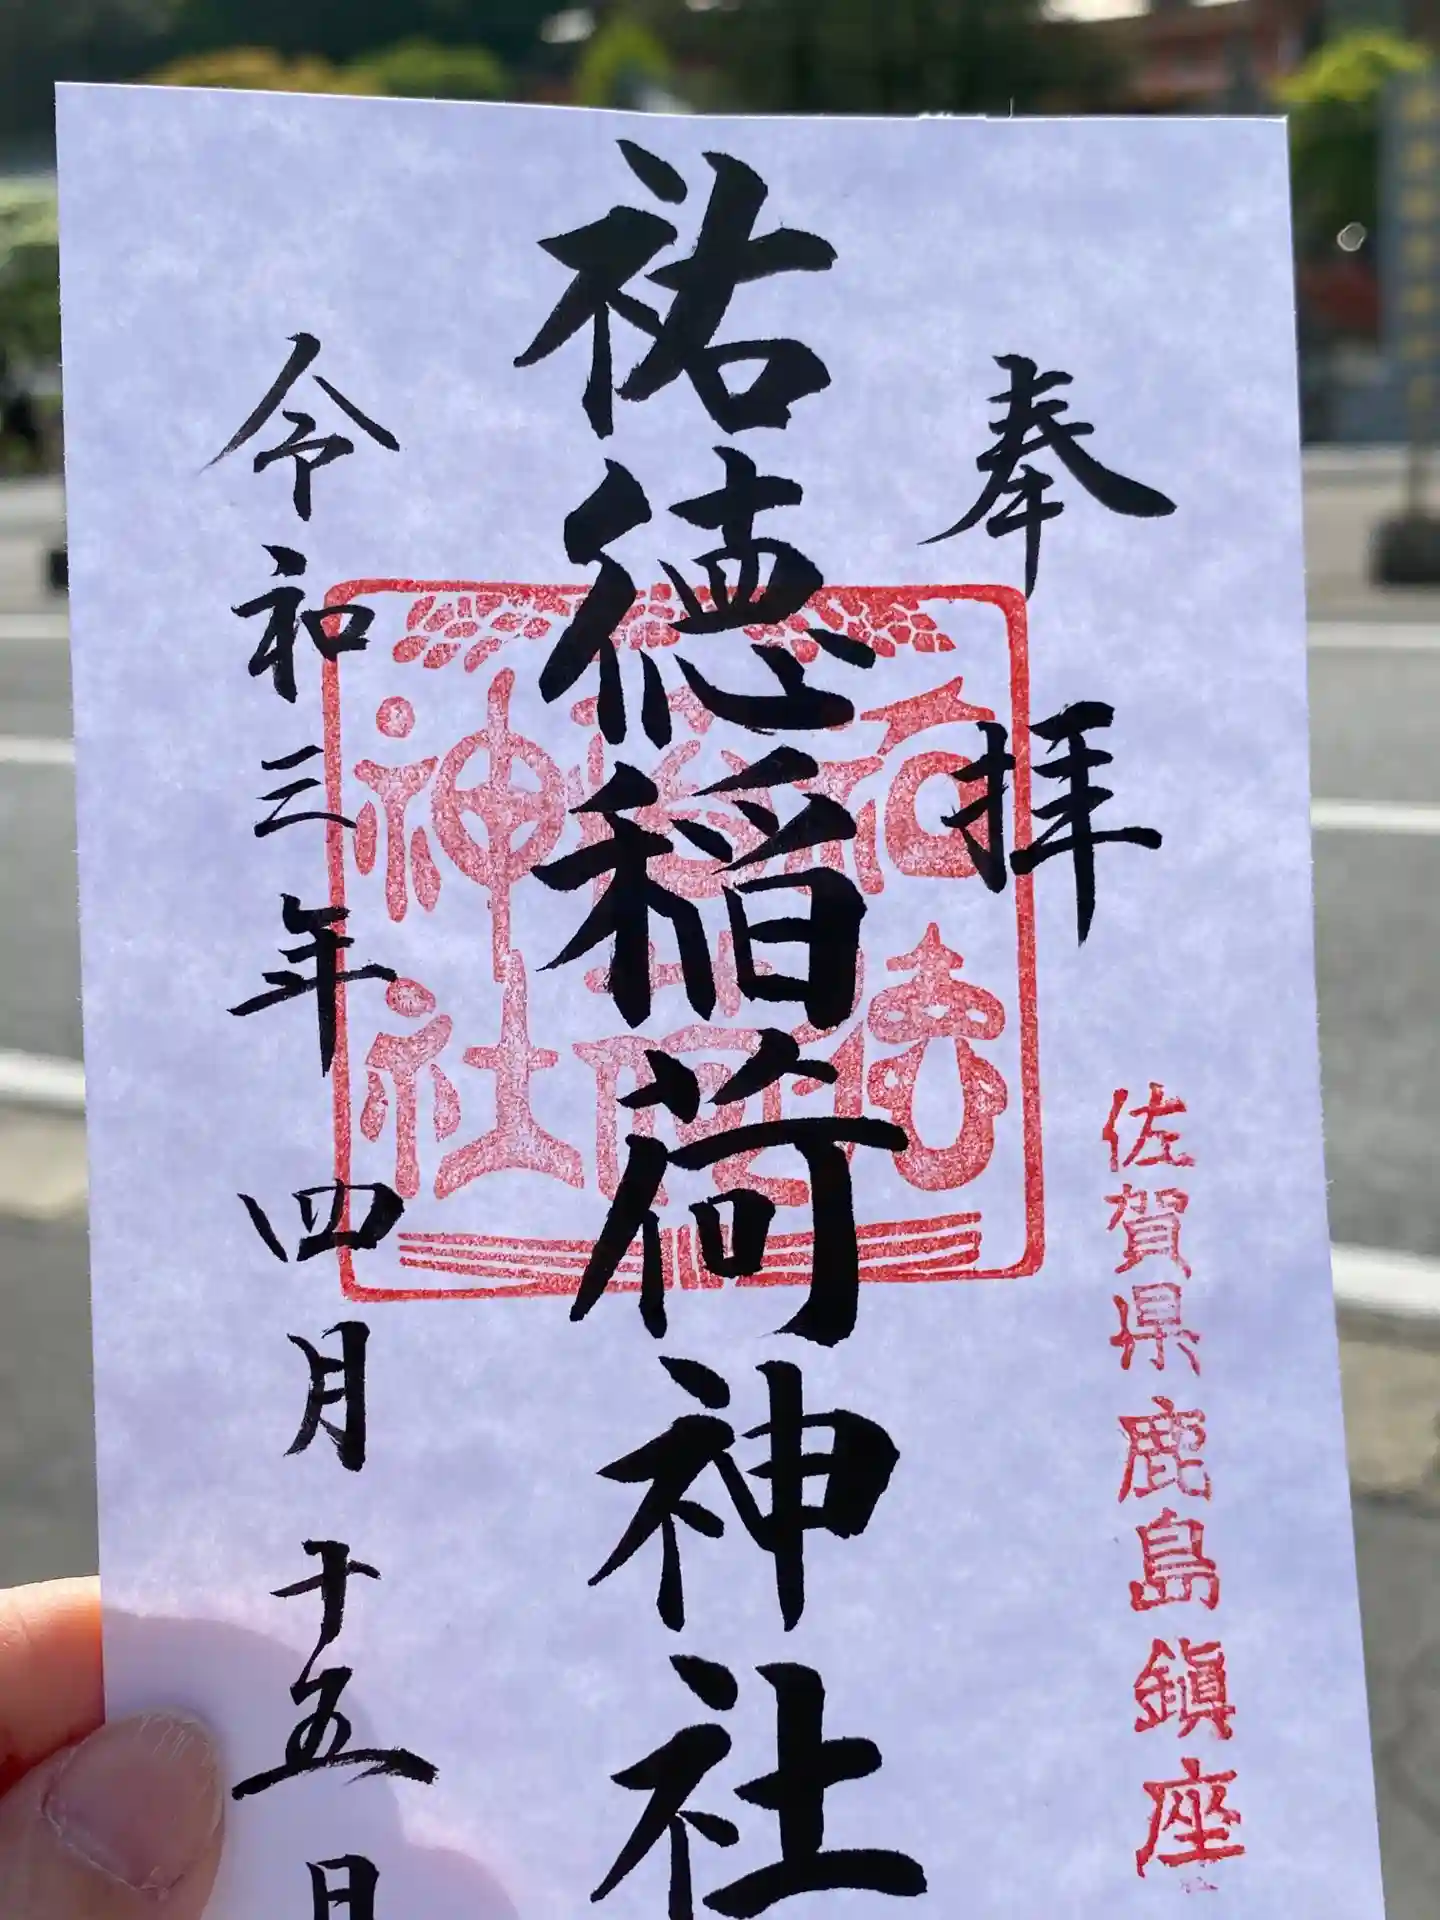 奉拝
佐賀県鹿島鎮座
祐徳稲荷神社
祐徳
稲荷
神社
令和三年四月十五日